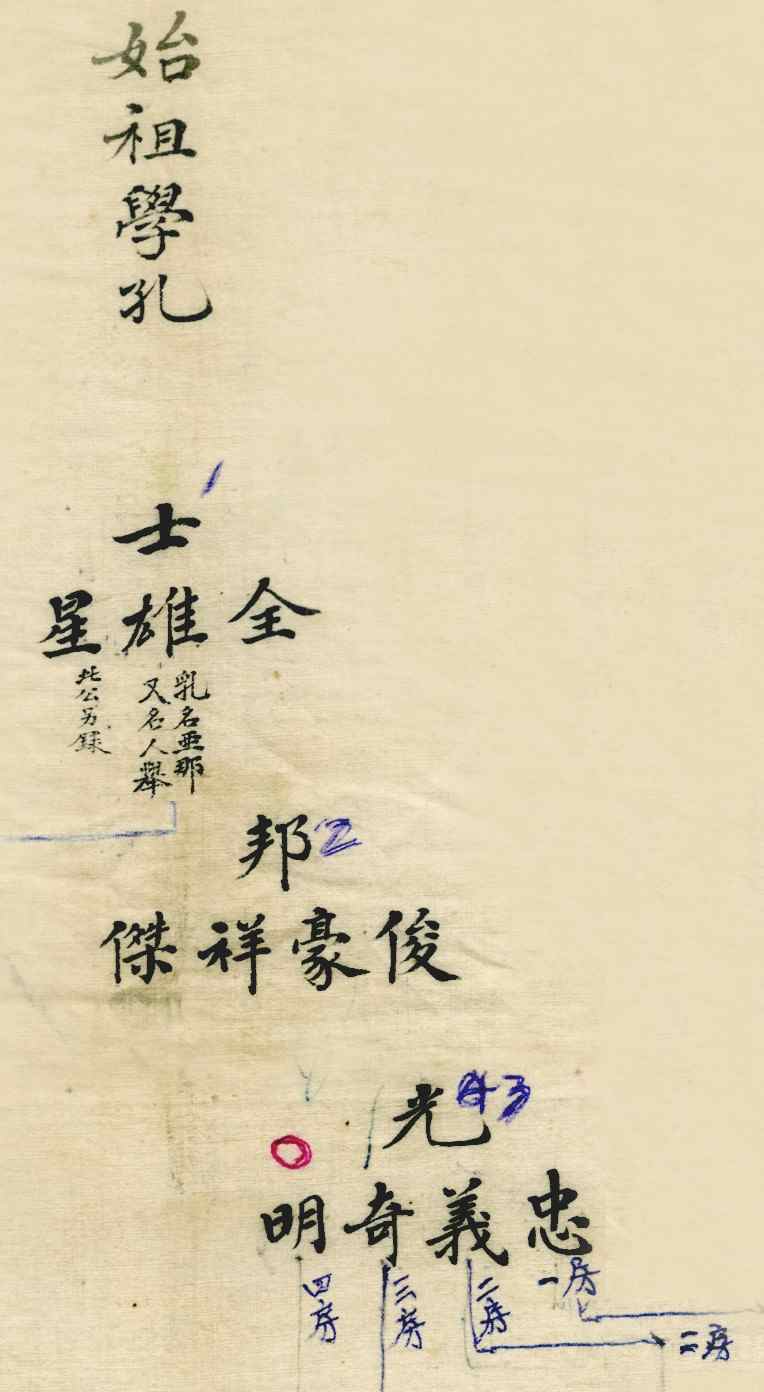 始祖學孔
1
士
全雄星
乳名亞那
又名人舉
此公另錄
邦2
俊豪祥傑
光3
忠義奇明
一房
二房
三房
四房
二房